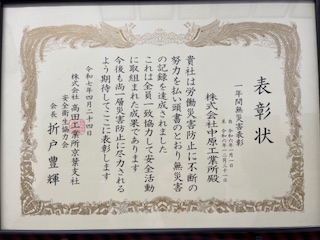 表彰状
一年間無災害表彰
自 令和六年一月一日
至 令和六年十二月三十一日
株式会社中原工業所殿
貴社は労働災害防止に不断の
努力を払い頭書のとおり無災害
の記録を達成されました
これは全員一致協力して安全活動
に取組まれた成果であります
今後も尚一層災害防止に尽力される
よう期待してここに表彰します
令和七年四月二十四日
株式会社 高田工業所京葉支社
安全衛生協力会
会長 折戸豊輝